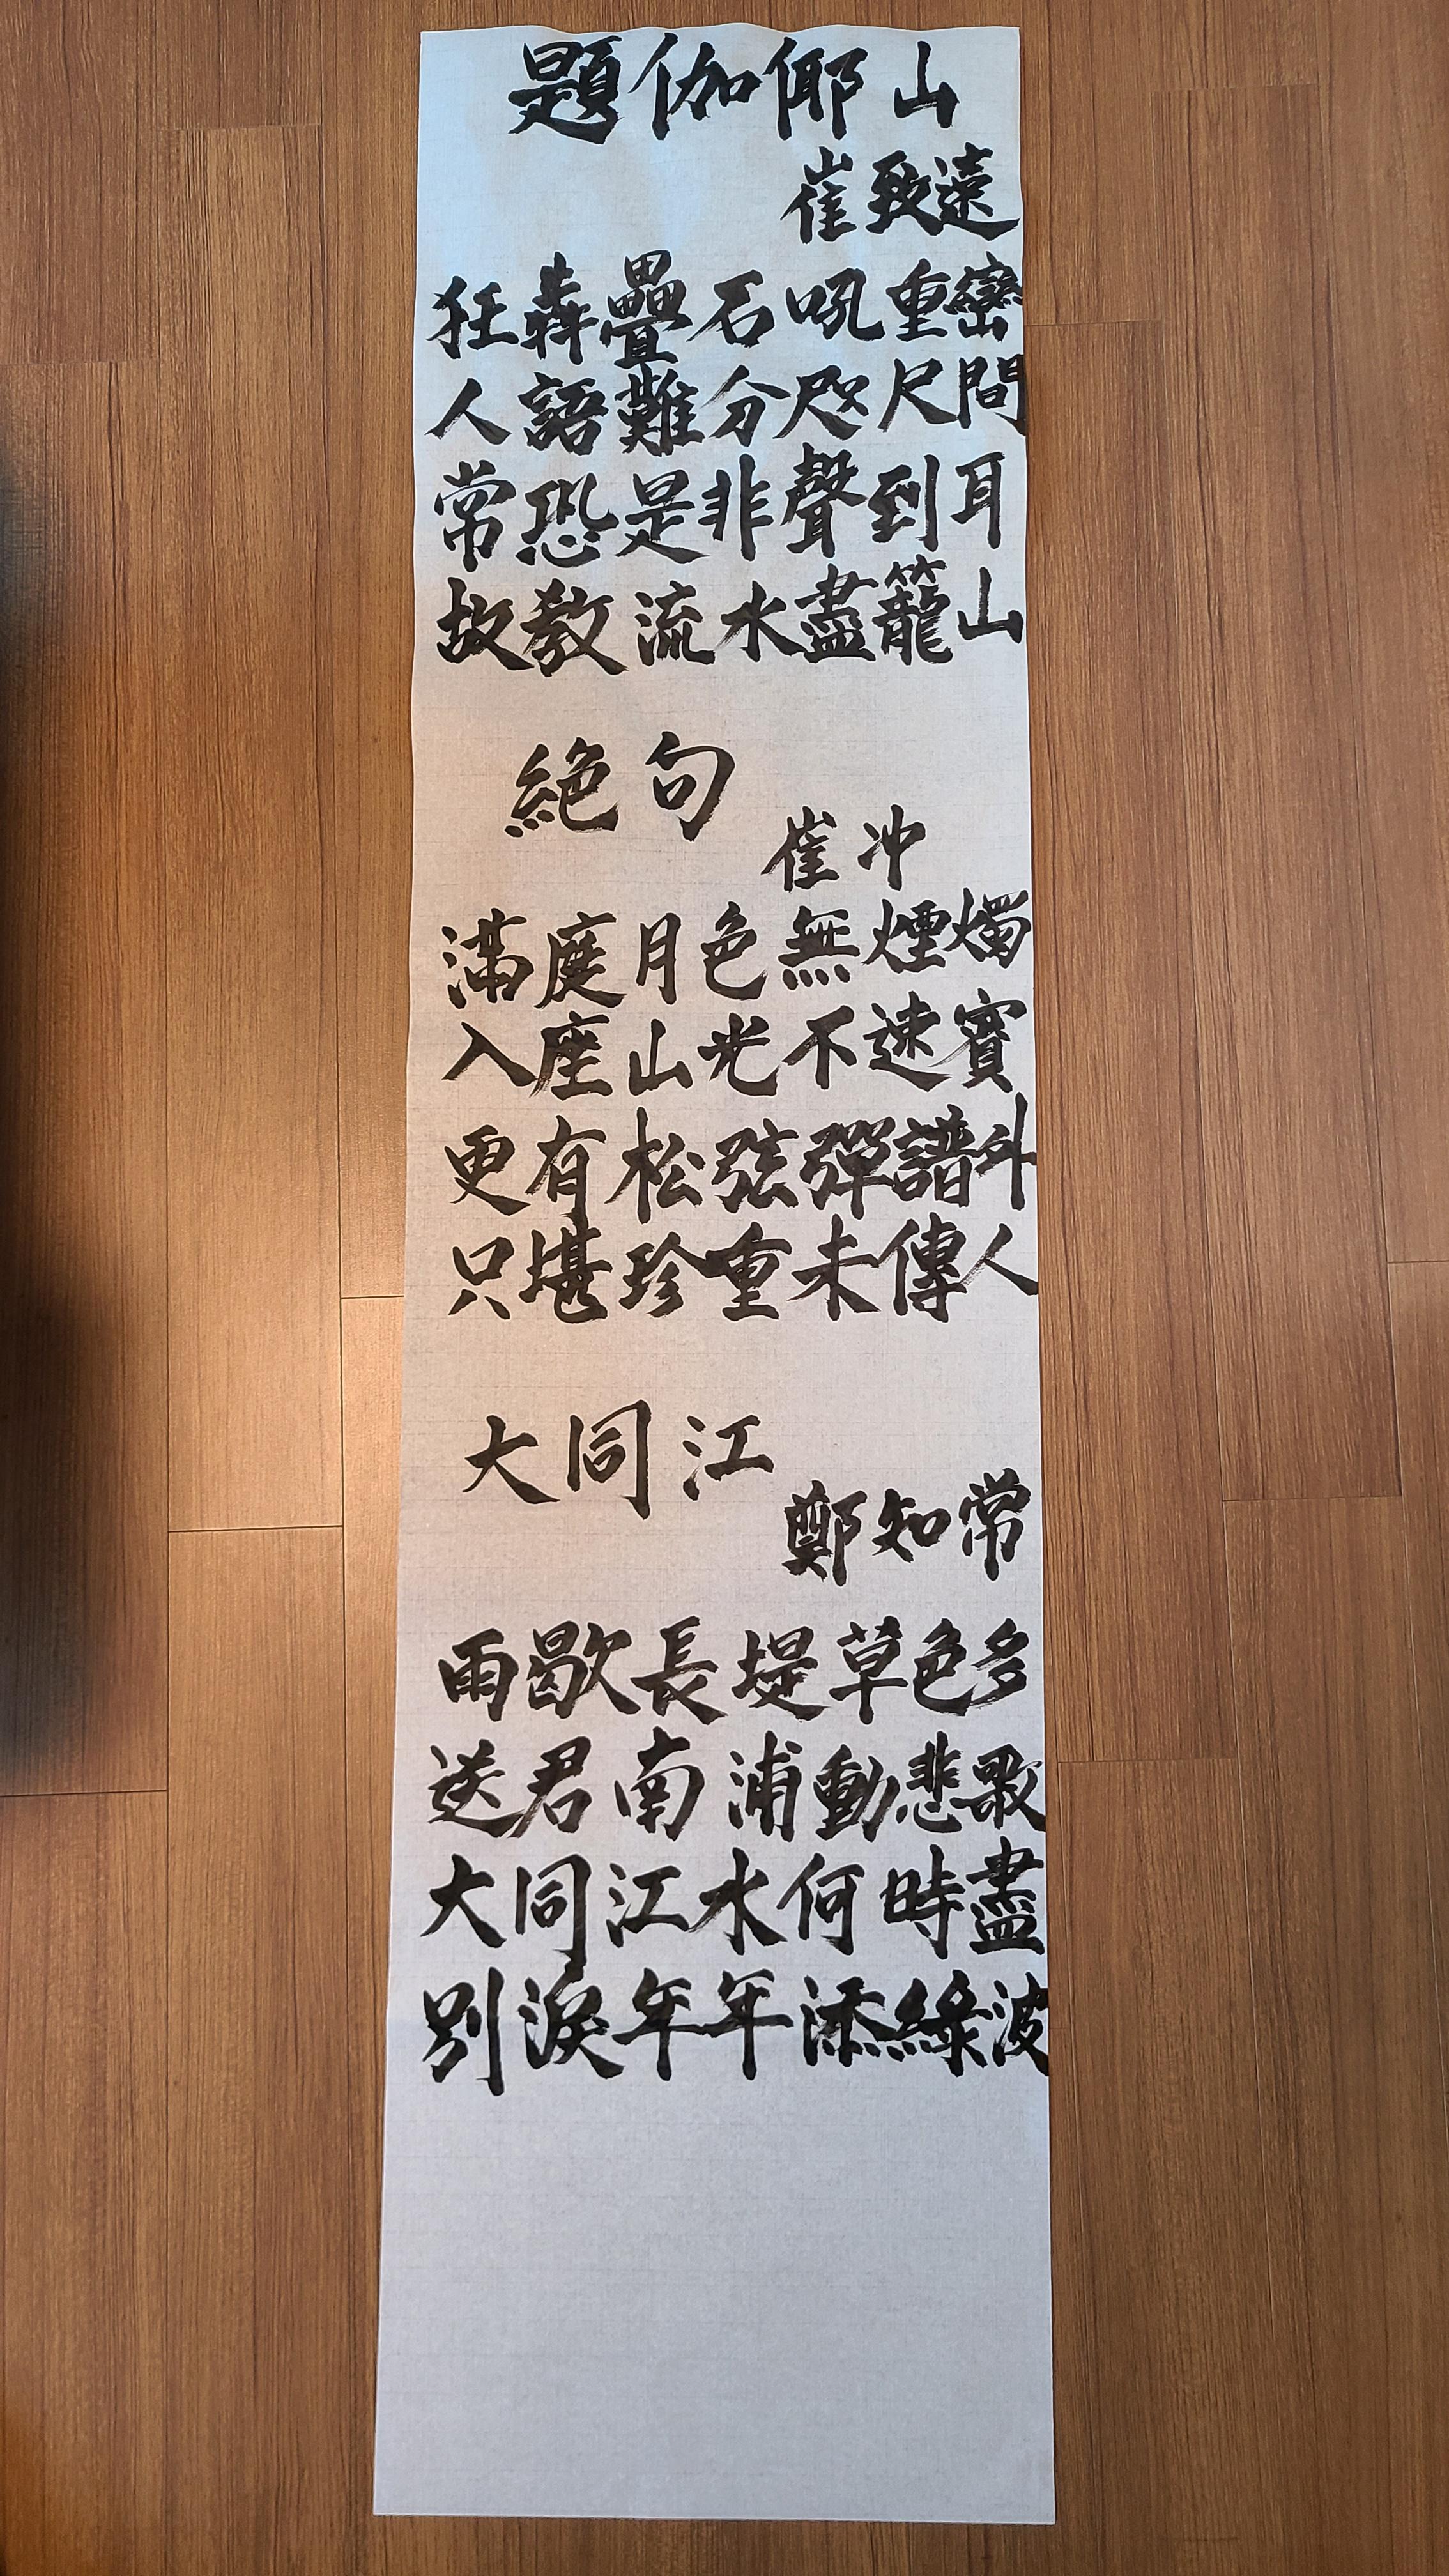 題伽倻山
崔致遠
狂犇疊石吼重巒
人語難分咫尺間
常恐是非聲到耳
故教流水盡籠山
絕句
崔冲
滿庭月色無煙燭
入座山光不速賓
更有松弦彈譜外
只堪珍重未傳人
大同江
鄭知常
雨歇長堤草色多
送君南浦動悲歌
大同江水何時盡
別淚年年添綠波